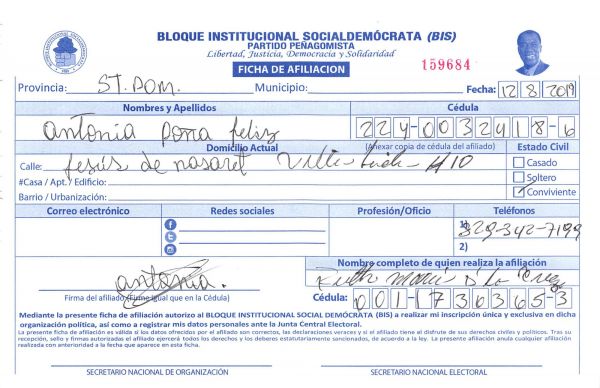 BLOQUE INSTITUCIONAL SOCIALDEMÓCRATA (BIS)
PARTIDO PEÑAGOMISTA
Libertad, Justicia, Democracia y Solidaridad
FICHA DE AFILIACION
159684
Provincia: ST. DOM. Municipio: Fecha: 12/8/2019
Nombres y Apellidos Cédula
antonia feliz 224-0032418-6
Domicilio Actual (Anexar copia de cédula del afiliado) Estado Civil
Calle: Jesús de nasaret #10
Casado
#Casa / Apt. / Edificio:
Soltero
Barrio / Urbanización:
Conviviente
Correo electrónico Redes sociales Profesión/Oficio Teléfonos
1) 829-342-7199
2)
Nombre completo de quien realiza la afiliación
antonia. Ruth D' La Cruz
Firma del afiliado (Firme igual que en la Cédula) Cédula: 001-1736365-3
Mediante la presente ficha de afiliación autorizo al BLOQUE INSTITUCIONAL SOCIAL DEMÓCRATA (BIS) a realizar mi inscripción única y exclusiva en dicha
organización política, así como a registrar mis datos personales ante la Junta Central Electoral.
La presente ficha de afiliación es válida si los datos ofrecidos por el afiliado son correctos, las declaraciones veraces y si el afiliado tiene el disfrute de sus derechos civiles y políticos. Tras su
recepción, sello y firmas autorizadas el afiliado ejercerá todos los derechos y los deberes estatutariamente sancionados, de acuerdo a la ley. La presente afiliación anula cualquier afiliación
realizada con anterioridad a la fecha que aparece en esta ficha.
SECRETARIO NACIONAL DE ORGANIZACIÓN SECRETARIO NACIONAL ELECTORAL